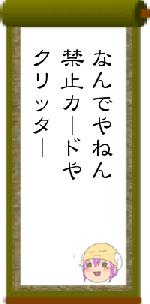 なんでやねん
禁止カードや
クリッター